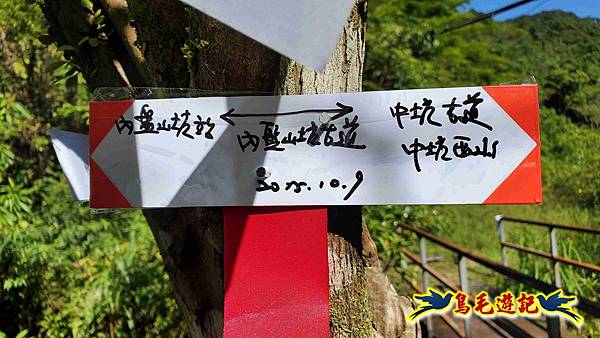 內盤山坑站
內盤山坑古道
中坑古道
中坑西山
2025.10.9
鳥毛遊記